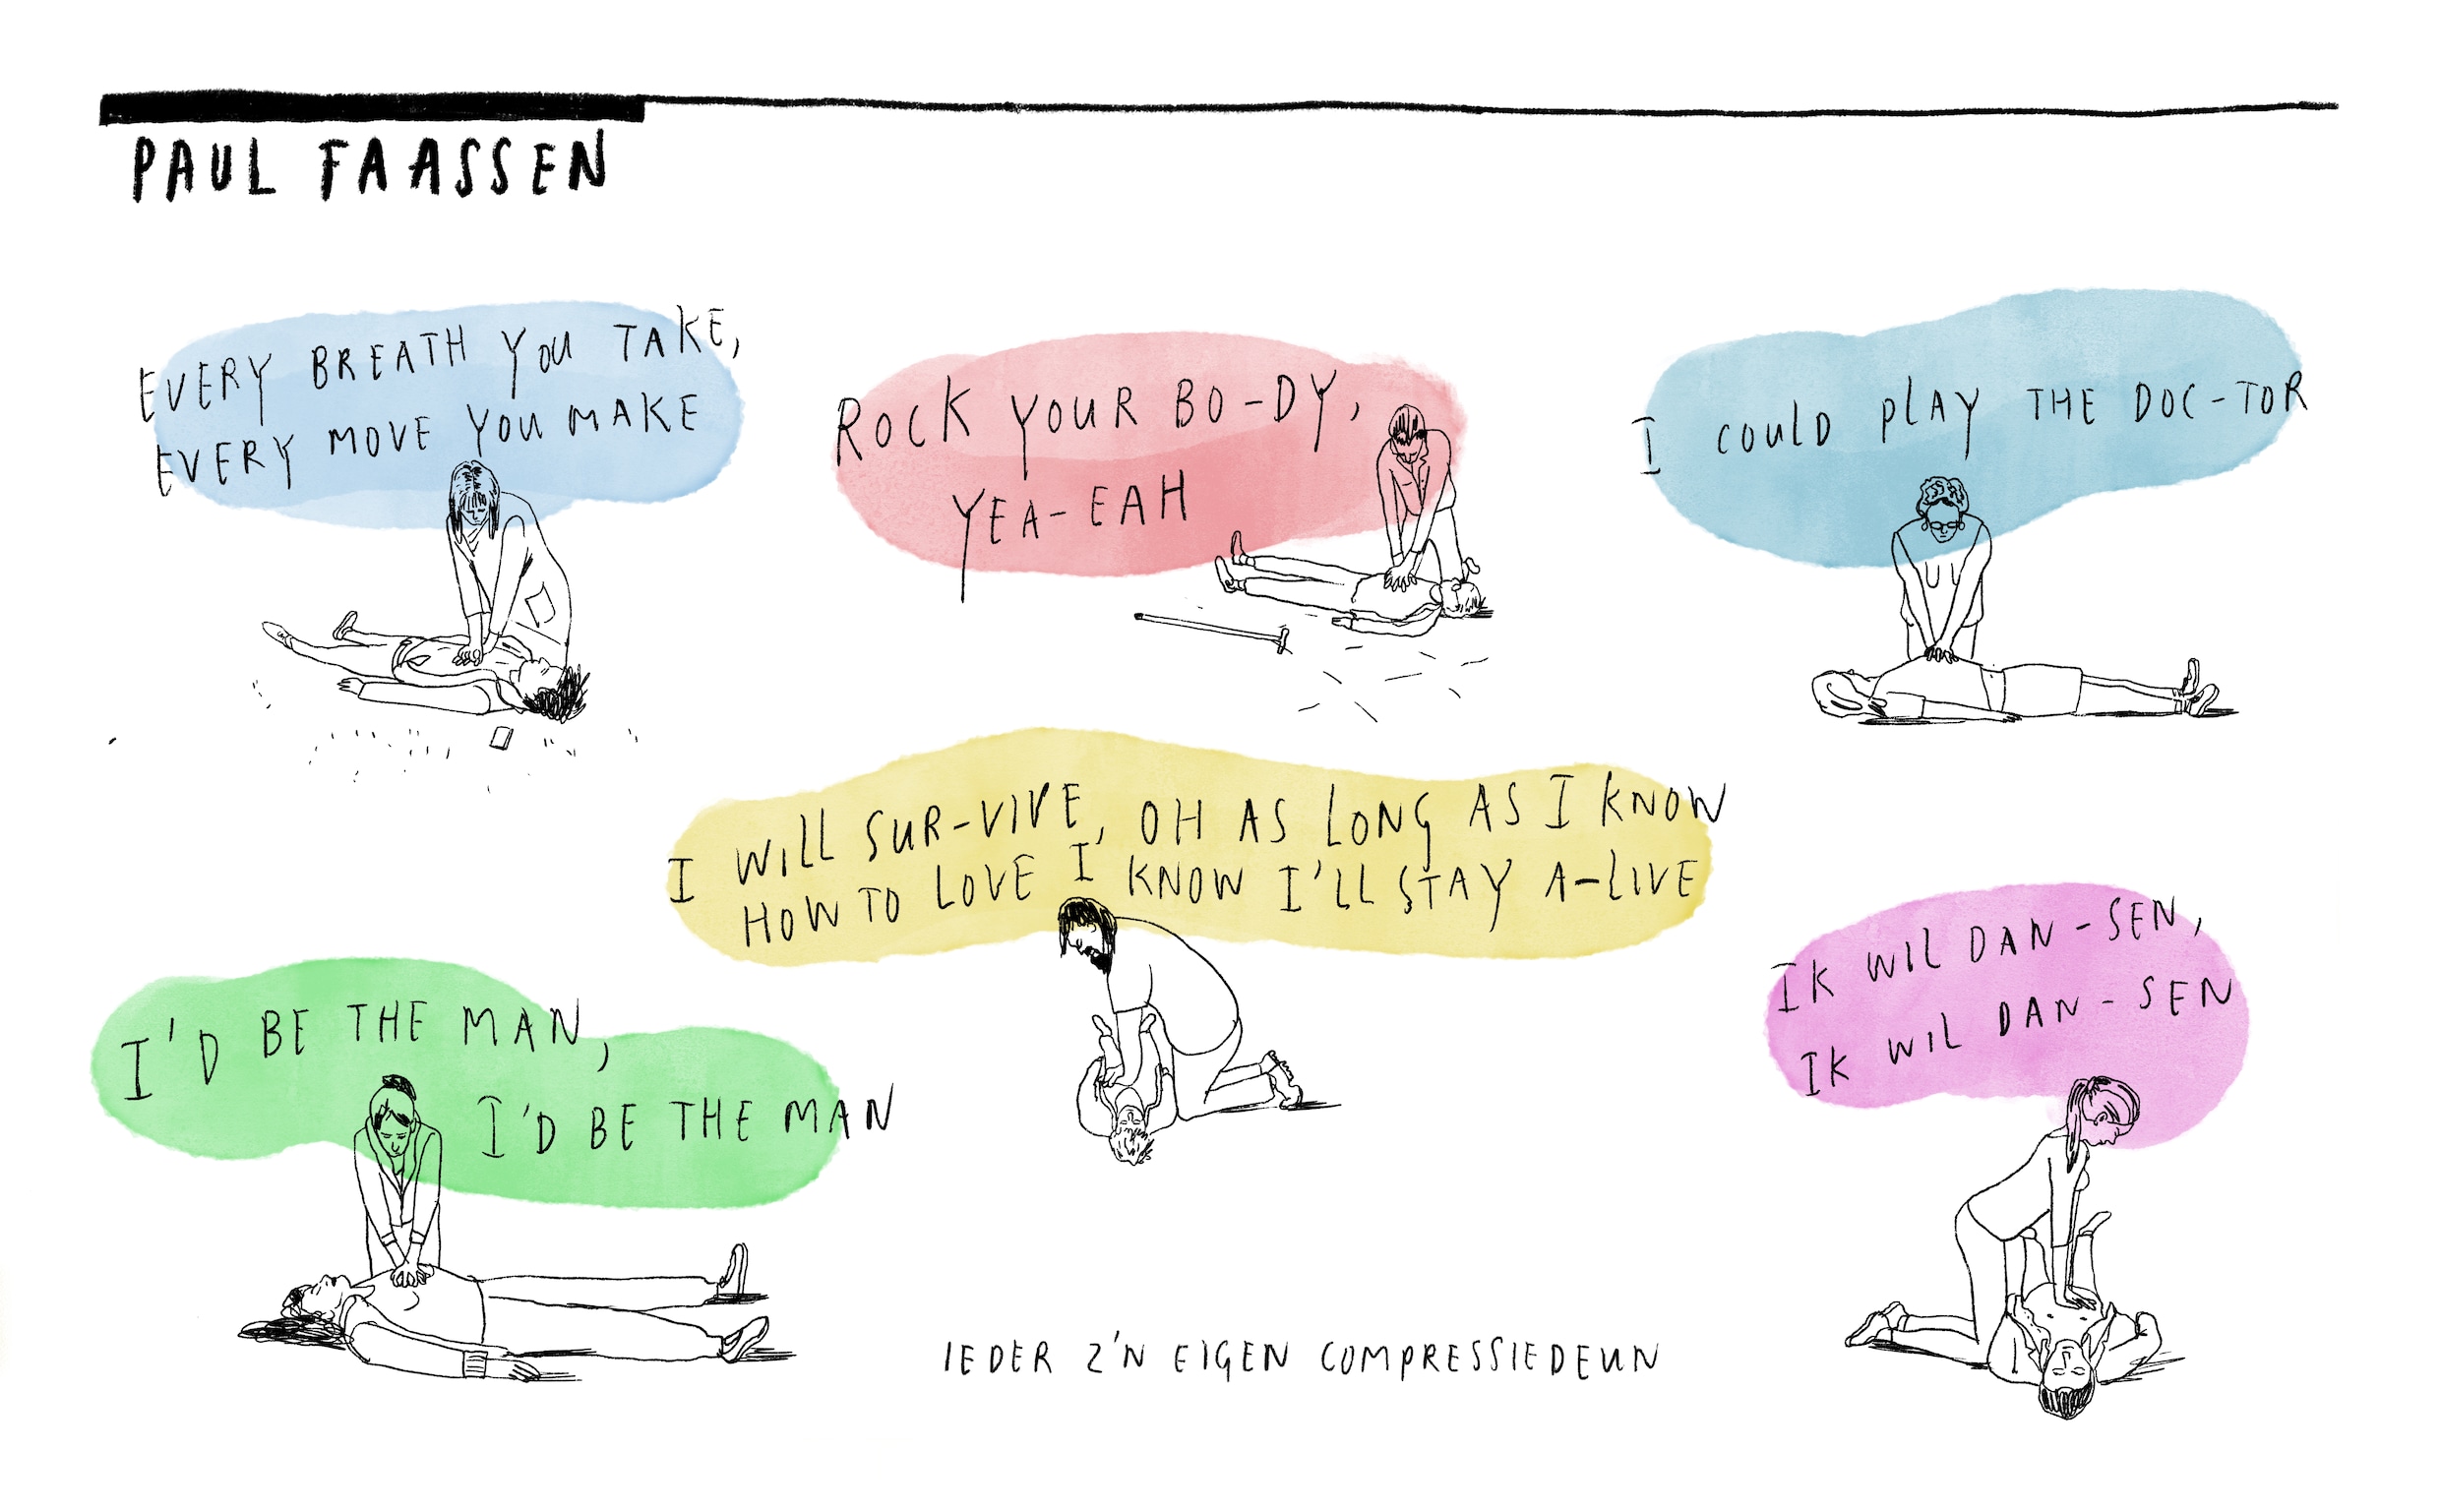 PAUL FAASSEN
EVERY BREATH YOU TAKE,
EVERY MOVE YOU MAKE
ROCK YOUR BO-DY,
YEA-EAH
I COULD PLAY THE DOC-TOR
I WILL SUR-VIVE, OH AS LONG AS I KNOW
HOW TO LOVE I KNOW I'LL STAY A-LIVE
I'D BE THE MAN,
I'D BE THE MAN
IK WIL DAN-SEN,
IK WIL DAN-SEN
IEDER Z'N EIGEN COMPRESSIEDEUN